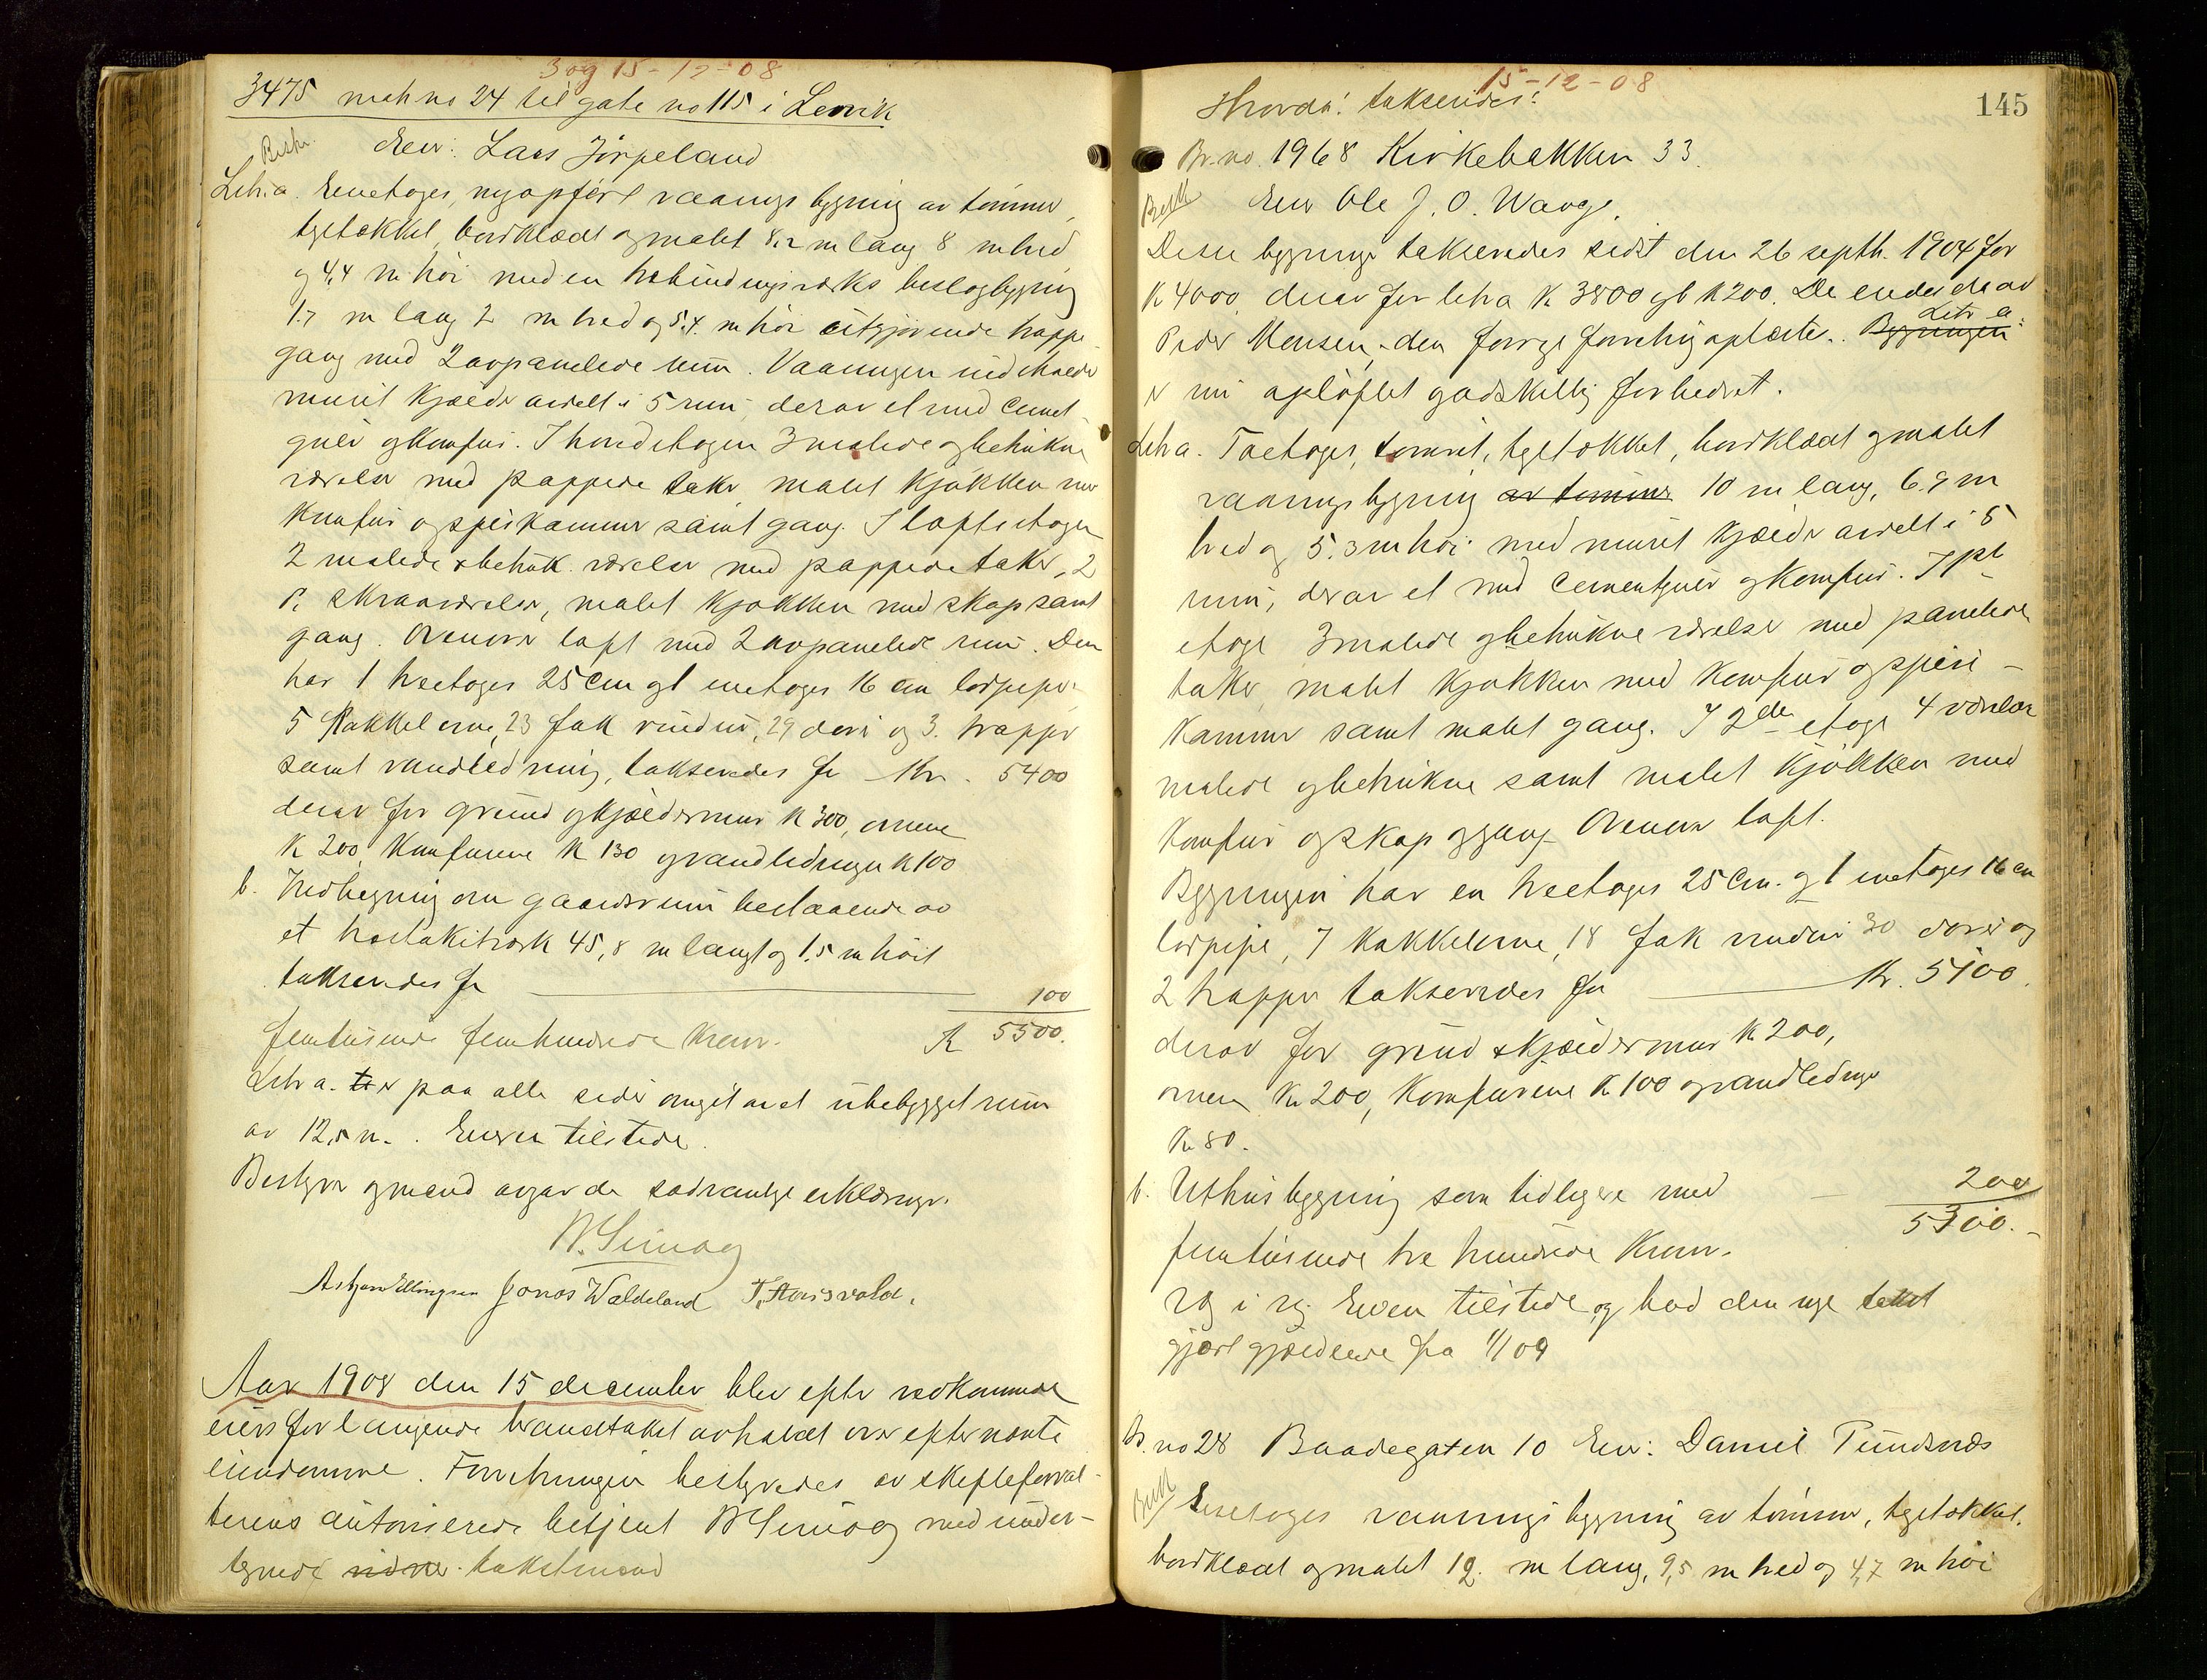 3 og 15-12-08
3475 match no 24 til gate no 115 i Lervik
Eier: Lars Jørpeland
Beskr.
Litr. a. Enetages, nyopført vaaningsbygning av tømmer,
tegltækket, bordklædt og malet 8.2 m lang 8 m bred
og 4,4 m høi med en halvbindingsværks beslagbygning
1.7 m lang 2 m bred og 5.4. m høi utgjørende trappe
gang med 2 avpanelede rum. Vaaningen indeholder
muret kjælder avdelt i 5 rum, derav et med cement
gulv og komfur. I hovedetagen 3 malede og betrukne
værelser med pappede taker malet kjøkken med
komfur og spiskammer samt gang. I loftsetagen
2 malede & betruk. værelser med pappede taker, 2
skraaværelser, malet kjøkken med skap samt
gang. Ovenover loft med 2 avpanelede rum. Den
har 1 treetages 25 cm og 1 enetages 16 cm lodpipe,
5 kakkelovne, 23 fak vinduer, 29 dører og 3. trapper
samt vandledning, takseredes for Kr. 5400
derav for grund og kjældermur K 300, ovnene
K 200, komfurene K 130 og vandledningen K 100
b. Indhegning om gaardsrum bestaaende av
et træstakitværk 45,8 m langt og 1.5 m høit
takseredes for 100
femtusinde femhundrede kroner. K 5500.
Litr a. er paa alle sider omgit av et ubebygget rum
av 12,5 m. Eieren tilstede.
Bestyrer og mænd avgav de sædvanlige erklæringer.
Asbjørn Ellingsen Jonas Waldeland
Aar 1908 den 15 december blev efter vedkommende
eiers forlangende brandtakst avholdt over efternævnte
eiendomme. Forretningen bestyredes av skifteforval-
terens autoriserede betjent med under-
tegnede takstmænd
15-12-08
145
Hvorda: takseredes:
Br. no 1968 Kirkebakken 33.
Beskr
Eier Ole J. O. Wauge.
Disse bygninger takseredes sidst den 26 septb. 1904 for
K 4000 derav for litra K 3800 og b K 200. De eiedes da av
Peder Monsen, den forrige forretning oplæstes. Bygningen Litr a.
er nu opløftet og adskillig forbedret.
Litr a. Toetages, tømret, tegltækket, bordklædt og malet
vaaningsbygning av tømmer 10 m lang, 6.9 m
bred og 5.3 m høi med muret kjælder avdelt i 5
rum, derav et med cementgulv og komfur. I 1ste
etage 3 malede og betrukne værelser med panelede
taker, malet kjøkken med komfur og spise-
kammer samt malet gang. I 2den etage 4 værelser
malede og betrukne samt malet kjøkken med
komfur og skap og gang. Ovenover loft.
Bygningen har en treetages 25 cm. og 1 enetages 16 cm
lodpipe, 7 kakkelovne, 18 fak vinduer 30 dører og
2 trapper takseredes for Kr. 5100.
derav for grund & kjældermur K 200,
ovnen K 200, komfurene K 100 og vandledninge
K 80.
b. Uthusbygning som tidligere med 200
5300.-
femtusinde tre hundrede kroner.
Eieren tilstede og bad den nye takst
gjort gjældende fra 1/1 09
Br. no 28 Baadegaten 10 Eier: Daniel Tundsnæs
Beskr
Enetages vaaningsbygning av tømmer, tegltækket,
bordklædt og malet 12. m lang, 9,5 m bred og 4,7 m høi